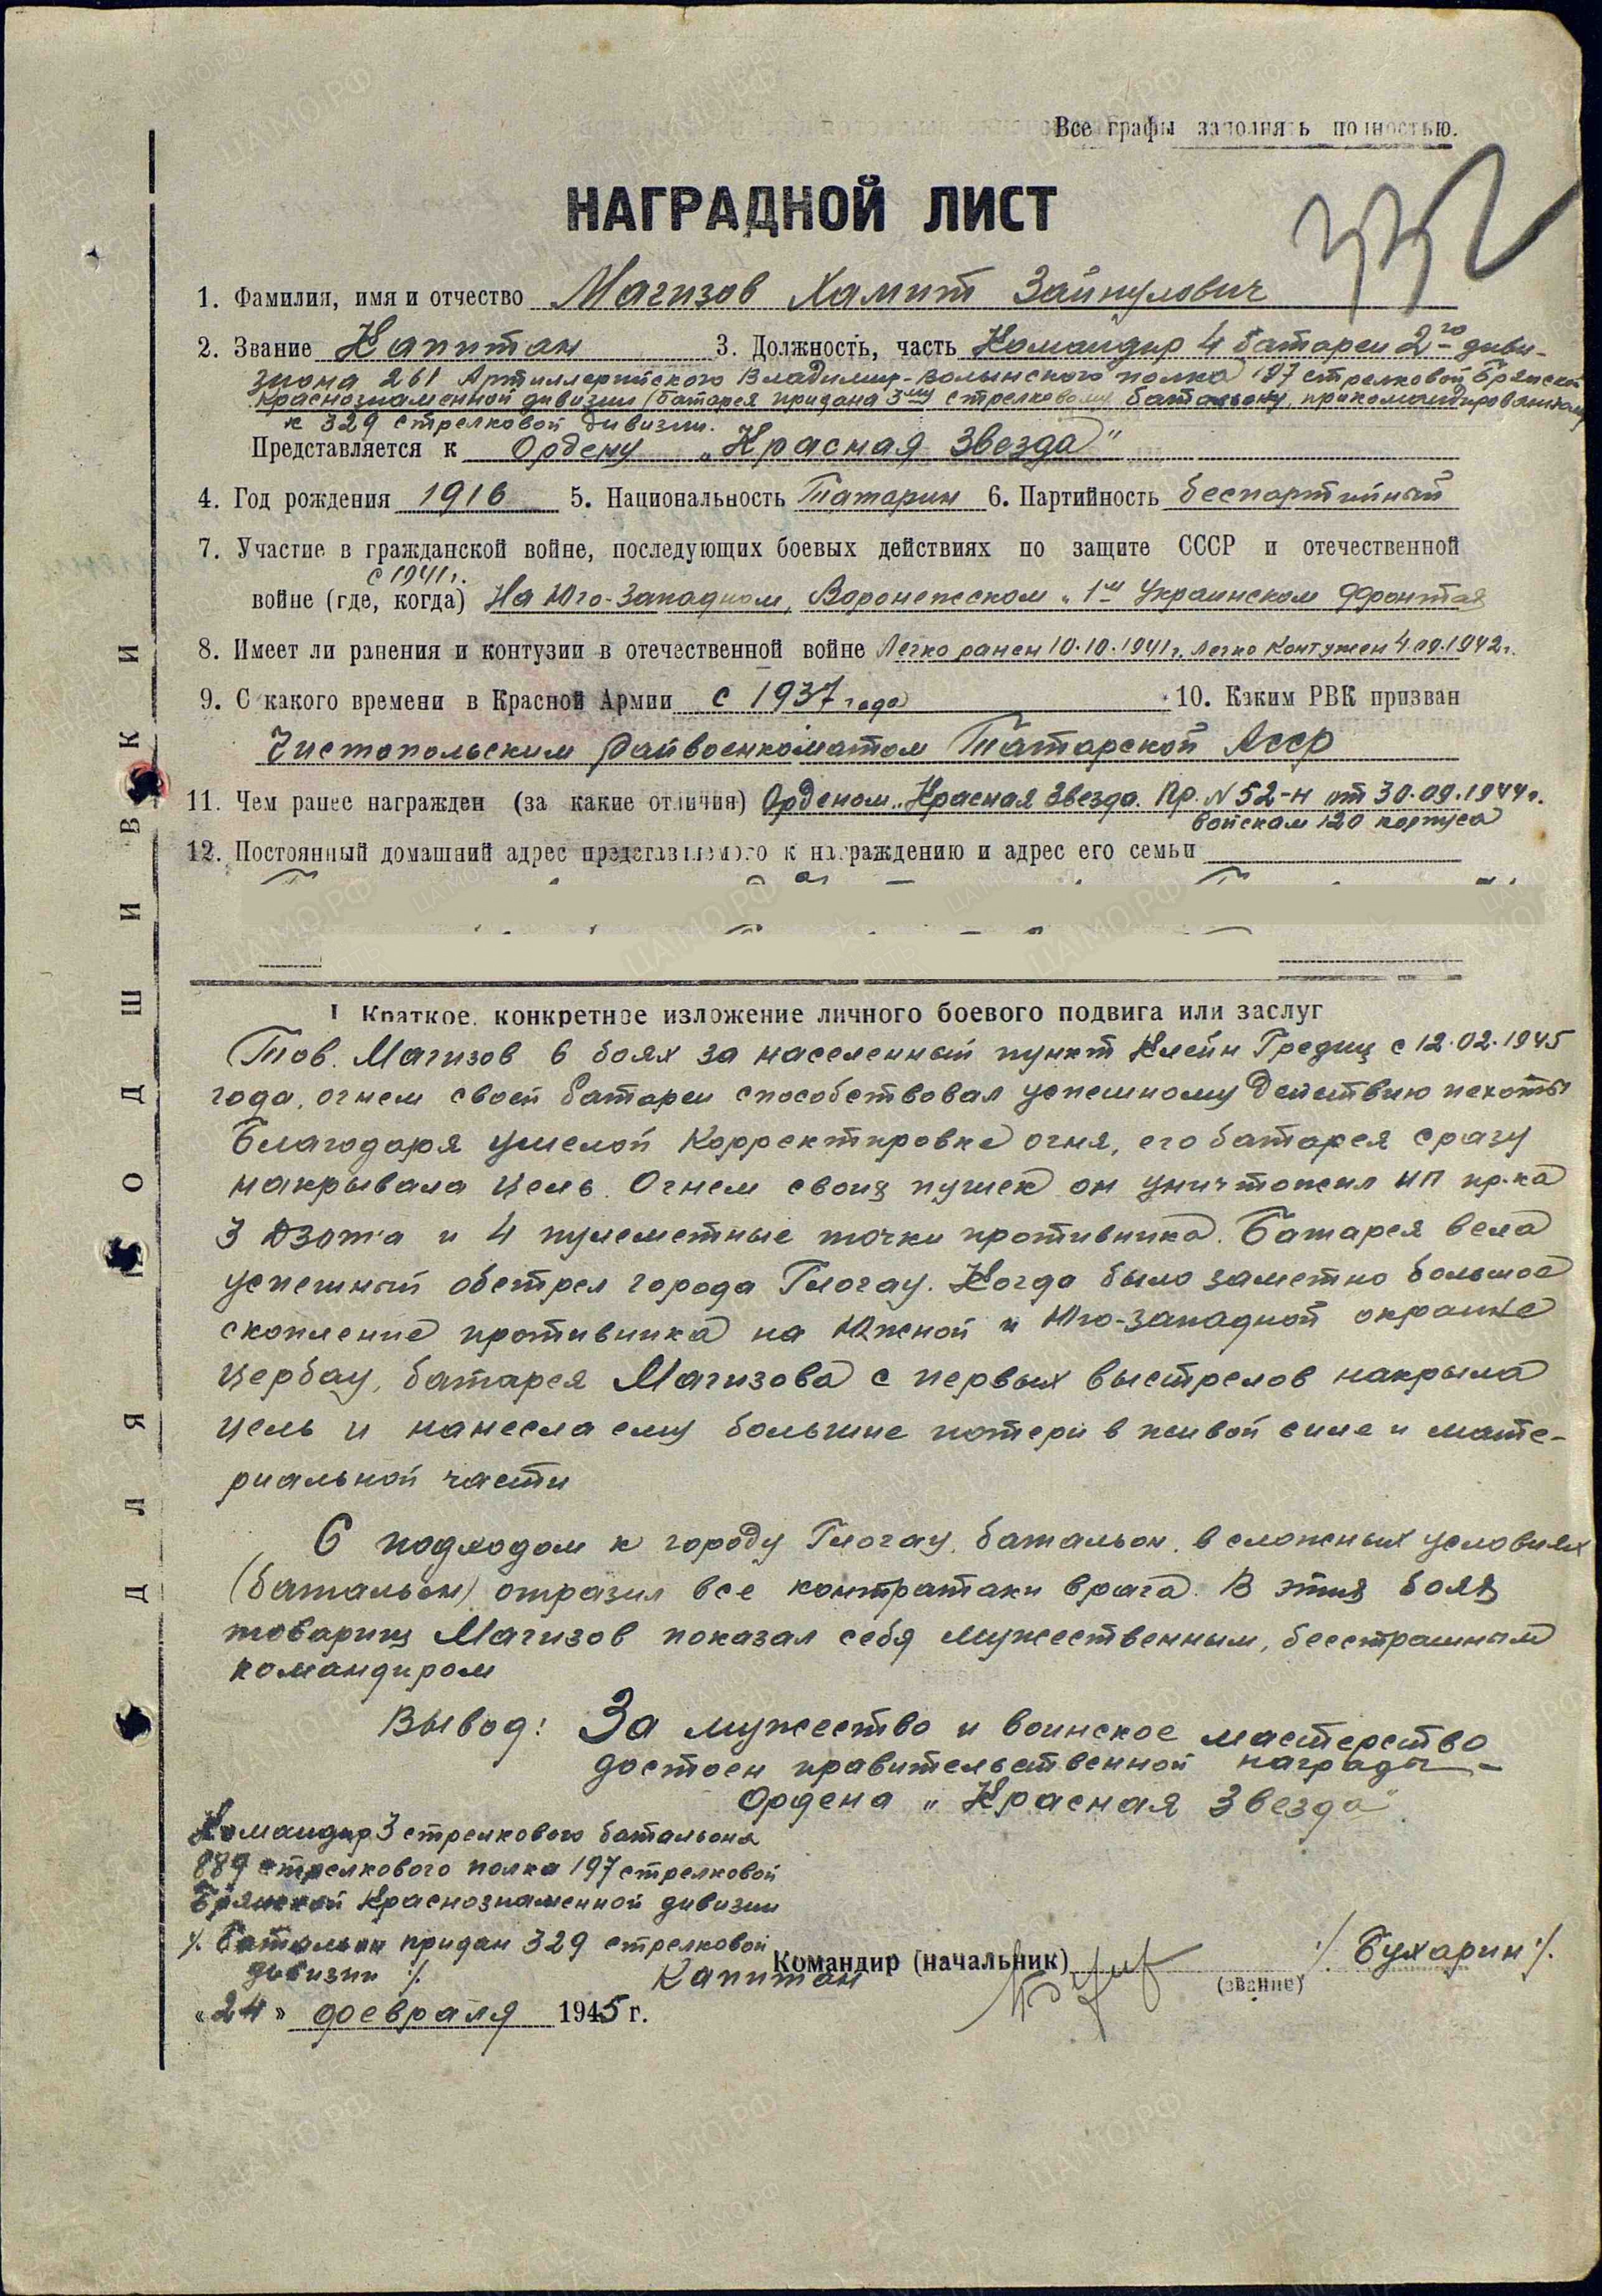 Все графы заполнять полностью.
НАГРАДНОЙ ЛИСТ
1. Фамилия, имя и отчество Магизов Хамит Зайнулович
2. Звание Капитан 3. Должность, часть Командир 4 батареи 2го диви-
зиона 261 Артиллерийского Владимир-Волынского полка 197 стрелковой Брянской
Краснознаменной дивизии (батарея придана 3му стрелковому батальону, прикомандированному
к 329 стрелковой дивизии.
Представляется к Ордену „Красная Звезда"
4. Год рождения 1916 5. Национальность Татарин 6. Партийность беспартийный
7. Участие в гражданской войне, последующих боевых действиях по защите СССР и отечественной
с 1941 г.
войне (где, когда) На Юго-Западном, Воронежском и 1м Украинском Фронтах
8. Имеет ли ранения и контузии в отечественной войне Легко ранен 10.10.1941 г. Легко контужен 4.09.1942 г.
9. С какого времени в Красной Армии с 1937 года 10. Каким РВК призван
Чистопольским райвоенкоматом Татарской Асср
11. Чем ранее награжден (за какие отличия) Орденом „Красная Звезда. Пр. N 52-н от 30.09.1944 г.
войскам 120 корпуса
12. Постоянный домашний адрес представляемого к награждению и адрес его семьи
I. Краткое, конкретное изложение личного боевого подвига или заслуг
Тов. Магизов в боях за населенный пункт Клейн Гредиц с 12.02.1945
года, огнем своей батареи способствовал успешному действию пехоты
Благодаря умелой корректировке огня, его батарея сразу
накрывала цель. Огнем своих пушек он уничтожил НП пр-ка
3 Дзота и 4 пулеметные точки противника. Батарея вела
успешный обстрел города Глогау. Когда было заметно большое
скопление противника на Южной и Юго-западной окраине
Цербау, батарея Магизова с первых выстрелов накрыла
цель и нанесла ему большие потери в живой силе и мате-
риальной части
С подходом к городу Глогау, батальон, в сложных условиях
(батальон) отразил все контратаки врага. В этих боях
товарищ Магизов показал себя мужественным, бесстрашным
командиром
Вывод: За мужество и воинское мастерство
достоен правительственной награды -
Ордена „Красная Звезда"
Командир 3 стрелкового батальона
889 стрелкового полка 197 стрелковой
Брянской Краснознаменной дивизии
/. Батальон придан 329 стрелковой
дивизии ./.
Капитан
Командир (начальник) ./. Бухарин ./.
(звание)
«24» февраля 1945 г.
ДЛЯ ПОДШИВКИ
ЦАМО.РФ